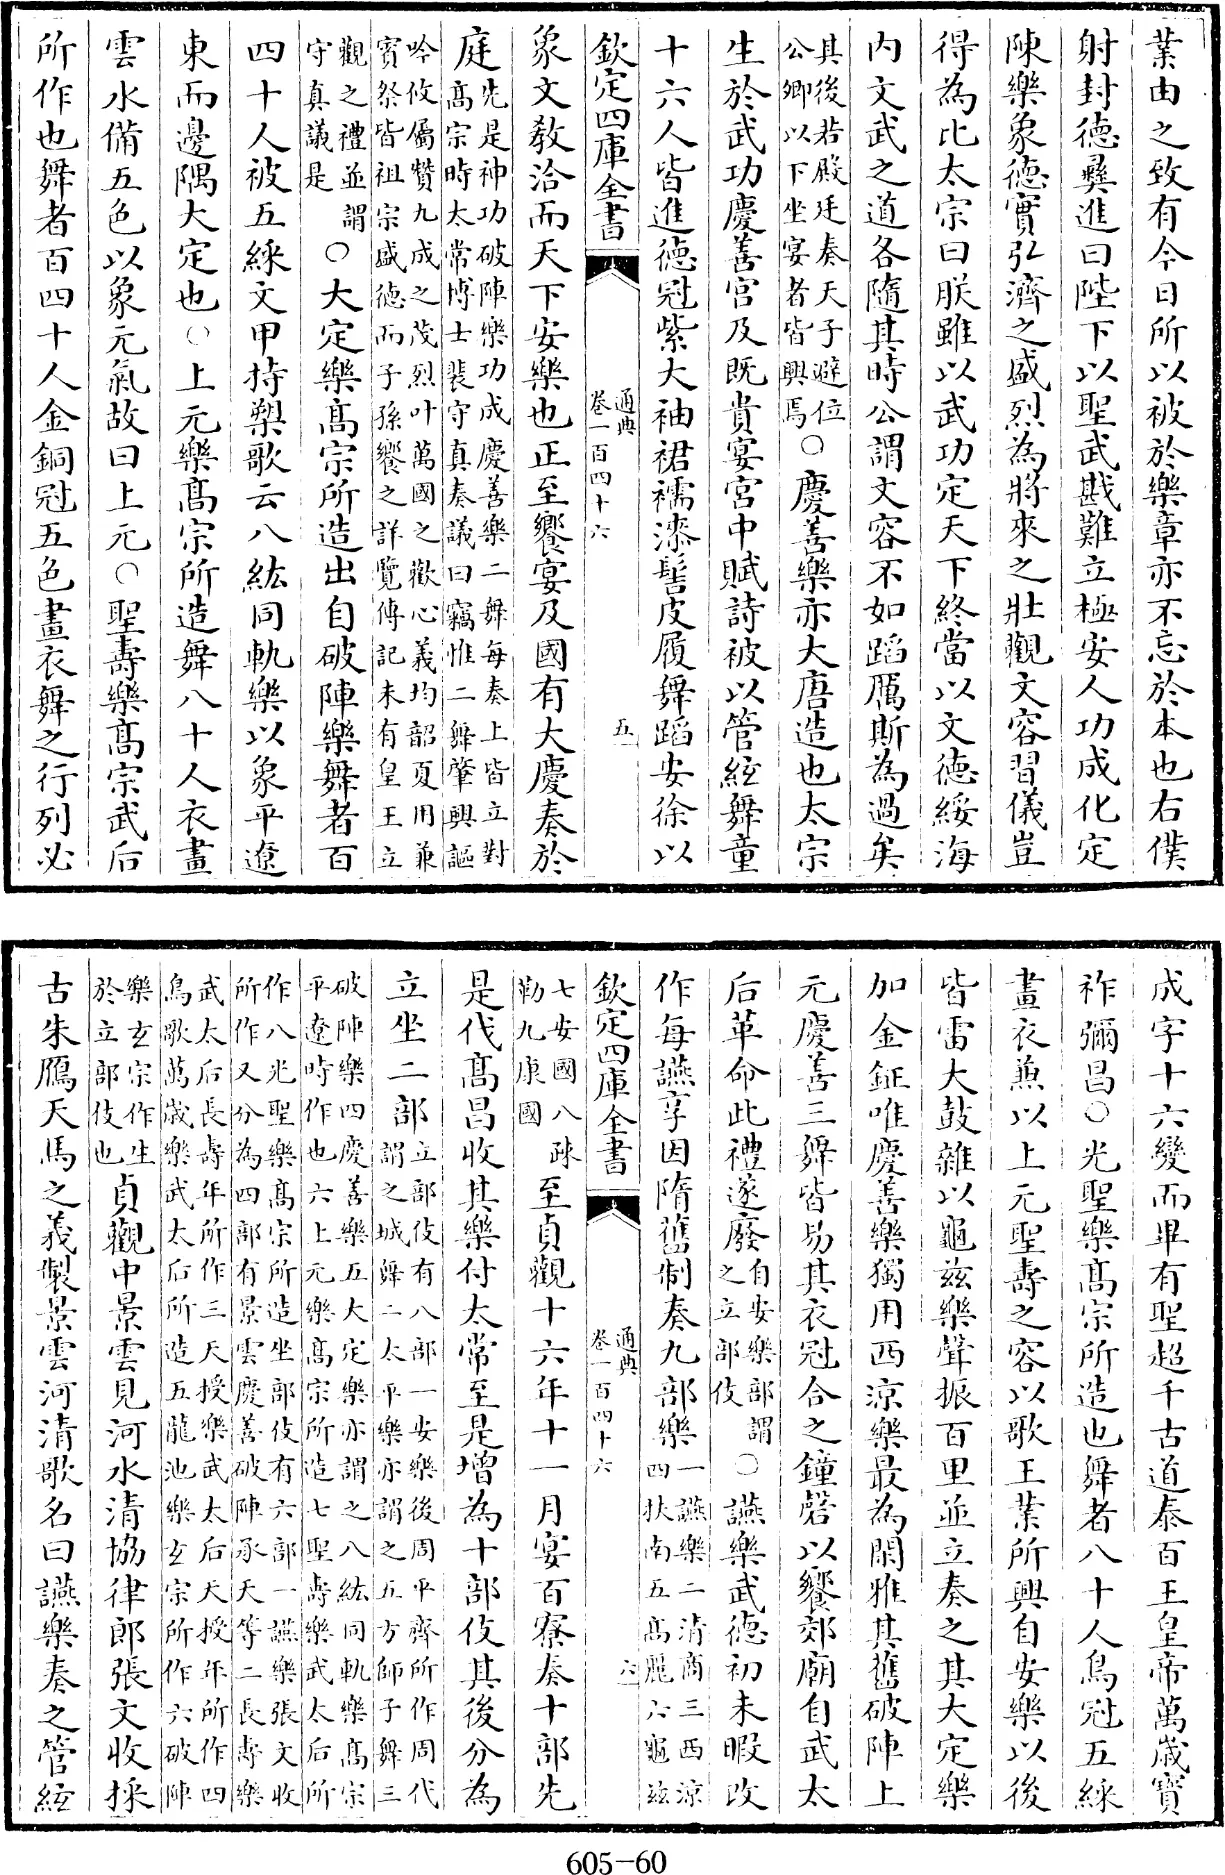 業由之致有今日所以被於樂章亦不忘於本也右僕
射封德彞進曰陛下以聖武戡難立極安人功成化定
陳樂象德實弘濟之盛烈為將來之壯觀文容習儀豈
得為比太宗曰朕雖以武功定天下終當以文德綏海
内文武之道各隨其時公謂文容不如蹈厲斯為過矣
其後若殿廷奏天子避位
公卿以下坐宴者皆興焉
○慶善樂亦大唐造也太宗
生於武功慶善宫及既貴宴宮中賦詩被以管絃舞童
十六人皆進德冠紫大袖裙襦漆髻皮履舞蹈安徐以
欽定四庫全書
通典
卷一百四十六
五
象文教洽而天下安樂也正至饗宴及國有大慶奏於
庭
先是神功破陣樂功成慶善樂二舞每奏上皆立對
高宗時太常博士裴守真奏議曰竊惟二舞肇興謳
吟攸屬贊九成之茂烈叶萬國之歡心義均韶夏用兼
賓祭皆祖宗盛德而子孫饗之詳覽傳記未有皇王立
觀之禮並謂
守真議是
○大定樂髙宗所造出自破陣樂舞者百
四十人被五綵文甲持槊歌云八紘同軌樂以象平遼
東而邊隅大定也○上元樂髙宗所造舞八十人衣畫
雲水備五色以象元氣故曰上元○聖壽樂髙宗武后
所作也舞者百四十人金銅冠五色畫衣舞之行列必
成字十六變而畢有聖超千古道泰百王皇帝萬歲寳
祚彌昌○光聖樂髙宗所造也舞者八十人鳥冠五綵
畫衣兼以上元聖壽之容以歌王業所興自安樂以後
皆雷大鼓雜以龜兹樂聲振百里並立奏之其大定樂
加金鉦唯慶善樂獨用西涼樂最為閑雅其舊破陣上
元慶善三舞皆易其衣冠合之鐘磬以饗郊廟自武太
后革命此禮遂廢
自安樂部謂
之立部伎
○讌樂武德初未暇改
作每讌享因隋舊制奏九部樂
一讌樂二清商三西涼
四扶南五髙麗六龜兹
欽定四庫全書
通典
卷一百四十六
六
七安國八疎
勒九康國
至貞觀十六年十一月宴百寮奏十部先
是代髙昌收其樂付太常至是增為十部伎其後分為
立坐二部
立部伎有八部一安樂後周平齊所作周代
謂之城舞二太平樂亦謂之五方師子舞三
破陣樂四慶善樂五大定樂亦謂之八紘同軌樂髙宗
平遼時作也六上元樂髙宗所造七聖壽樂武太后所
作八光聖樂髙宗所造坐部伎有六部一讌樂張文收
所作又分為四部有景雲慶善破陣承天等二長壽樂
武太后長壽年所作三天授樂武太后天授年所作四
鳥歌萬歲樂武太后所造五龍池樂玄宗所作六破陣
樂玄宗作生
於立部伎也
貞觀中景雲見河水清協律郎張文收採
古朱鴈天馬之義製景雲河清歌名曰讌樂奏之管絃
605-60